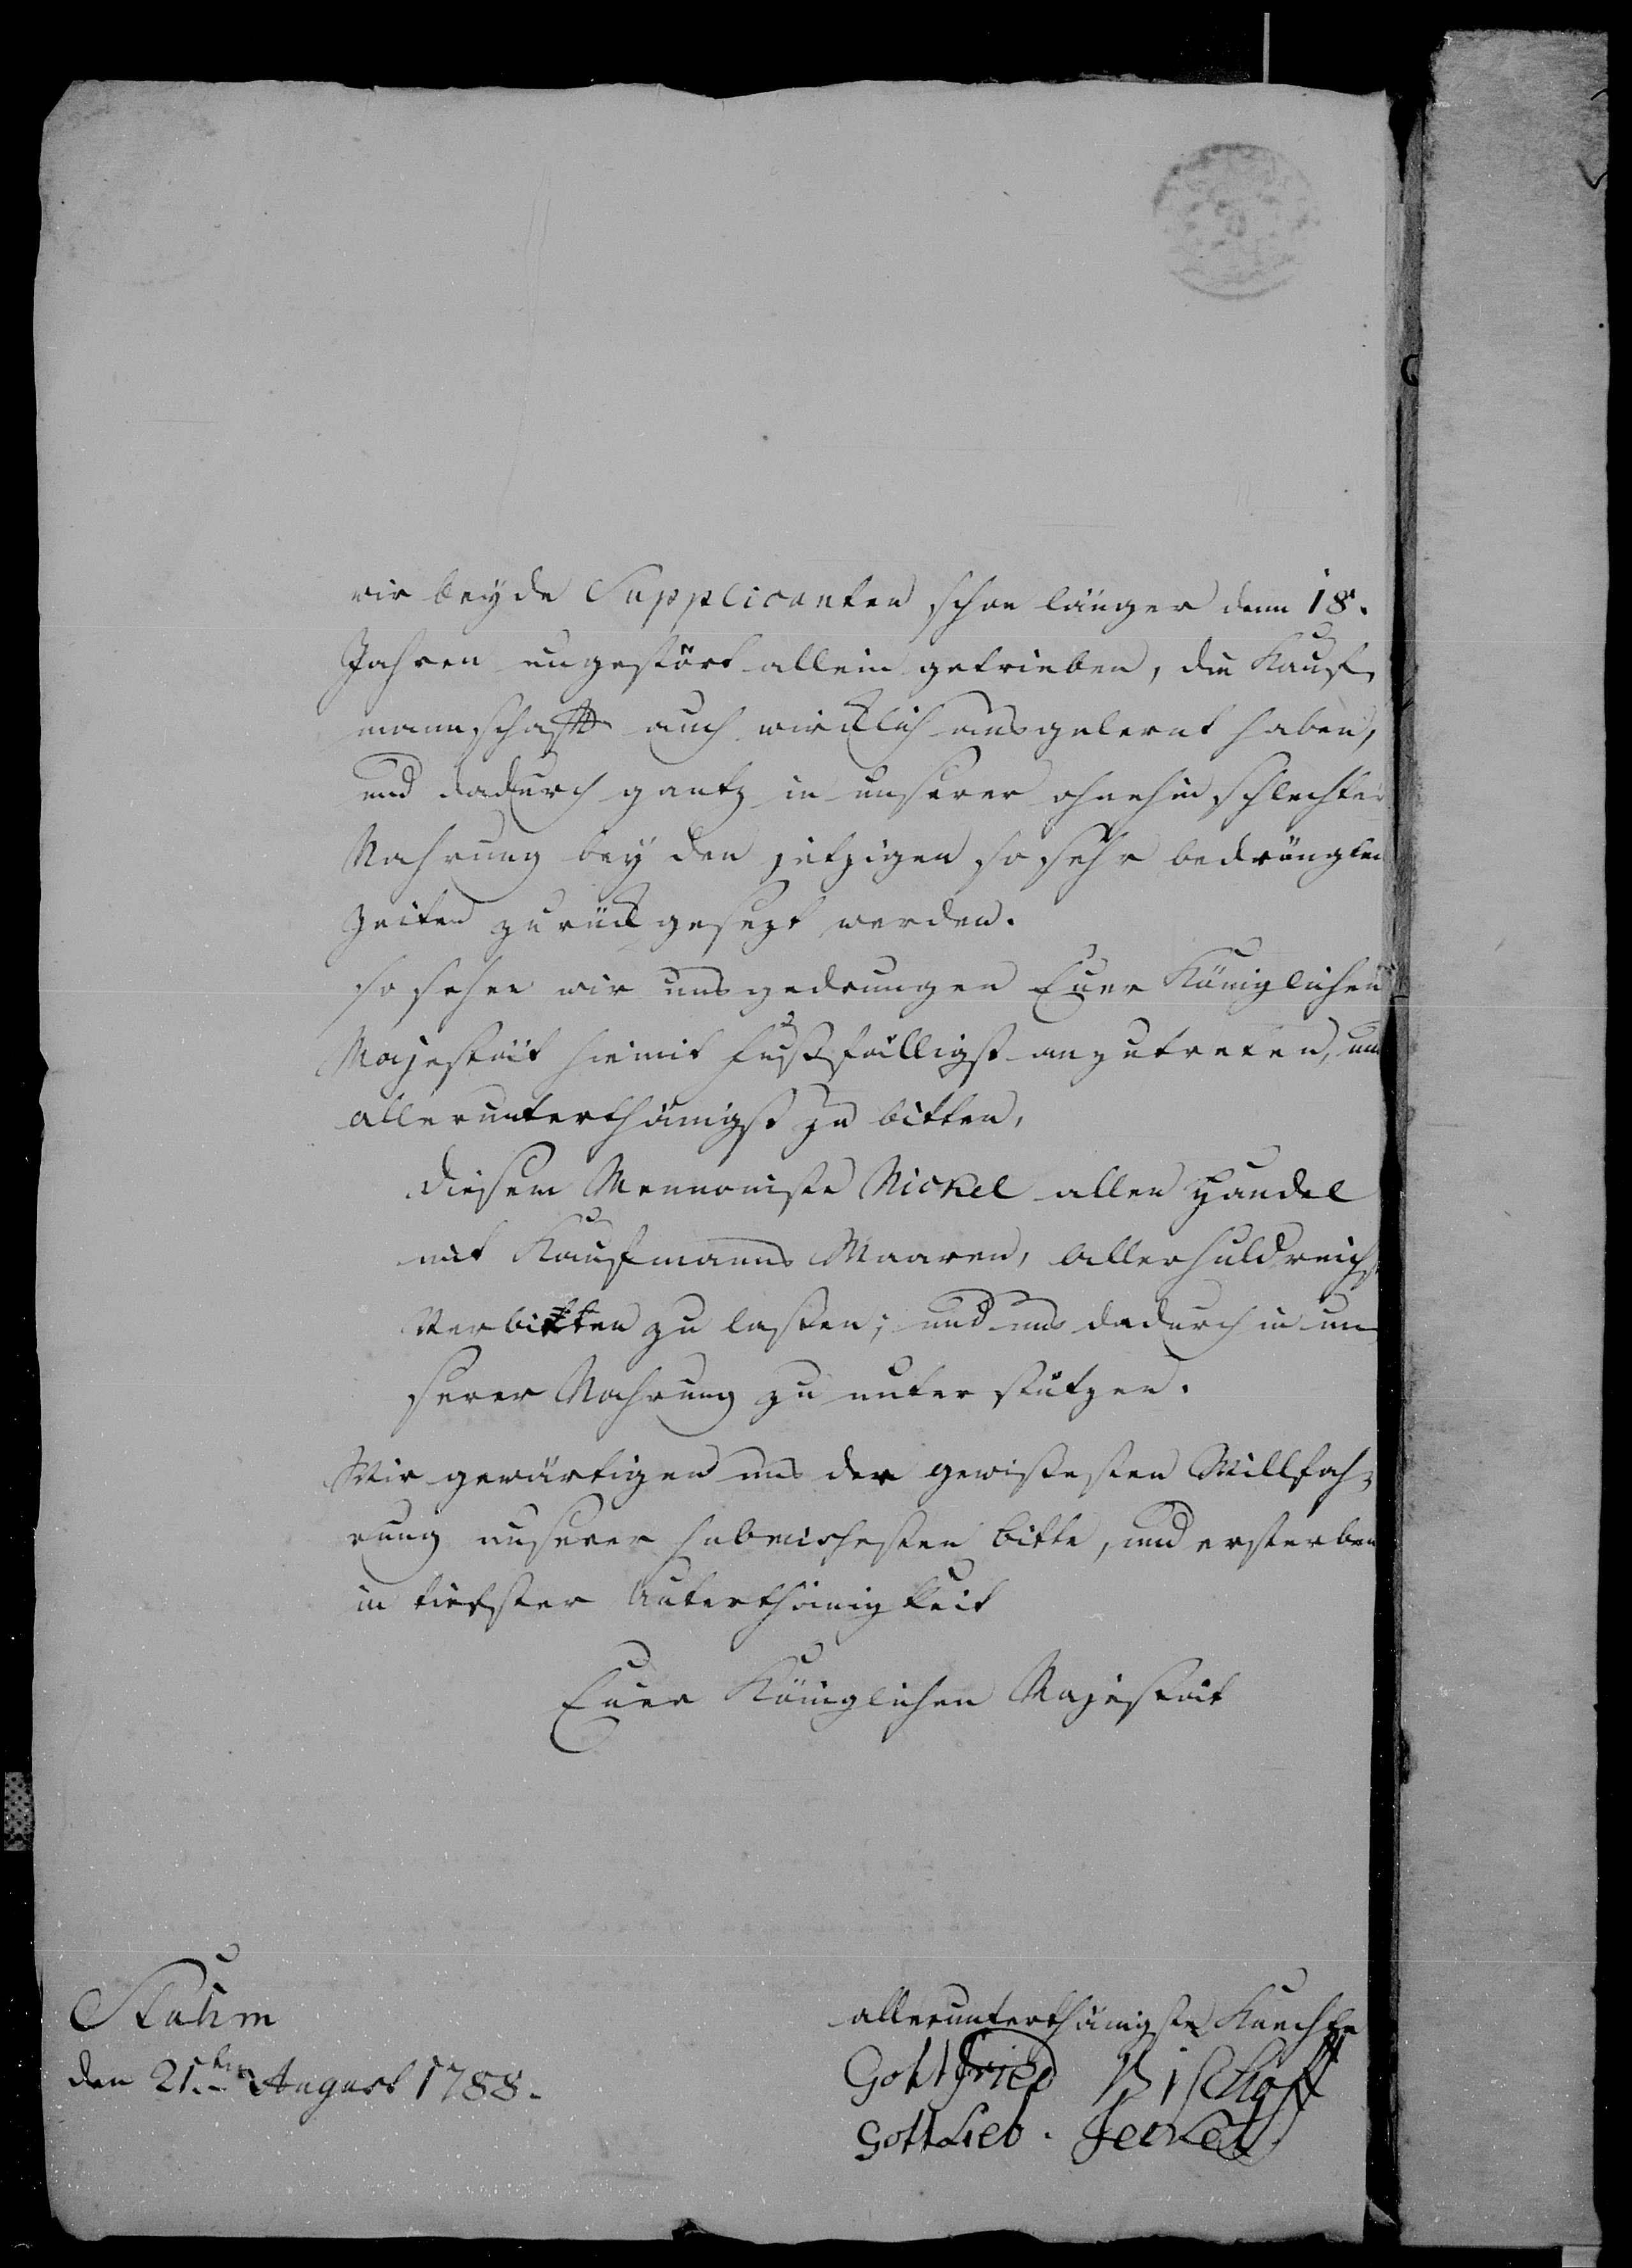 wir beyde Supplicanten schon länger denn 18.
Jahren ungestört allein getrieben, die Kauf-
mannschafft auch wircklich ausgelernt haben,
und dadurch gantz in unserer ohnehin schlechten
Nahrung bey den jetzigen so sehr bedrängten
Zeiten zurückgesezt werden.
so sehen wir uns gedrungen Euer Königlichen
Majestät hiemit fußfälligst anzutreten, und
allerunterthänigst zu bitten,
diesem Mennoniste Nickel allen Handel
mit Kaufmanns Waaren, allerhuldreichst
verbitten zu lassen; und uns dadurch in un
serer Nahrung zu unterstützen.
Wir gewärtigen uns der gewissesten Willfah-
rung unserer submissesten bitte, und ersterben
in tiefster Unterthänigkeit
Euer Königlichen Majestät
Stuhm
den 21.ten August 1788.
allerunterthänigste Knechte
Gottfried Bischoff
Gottlieb. Jeckel